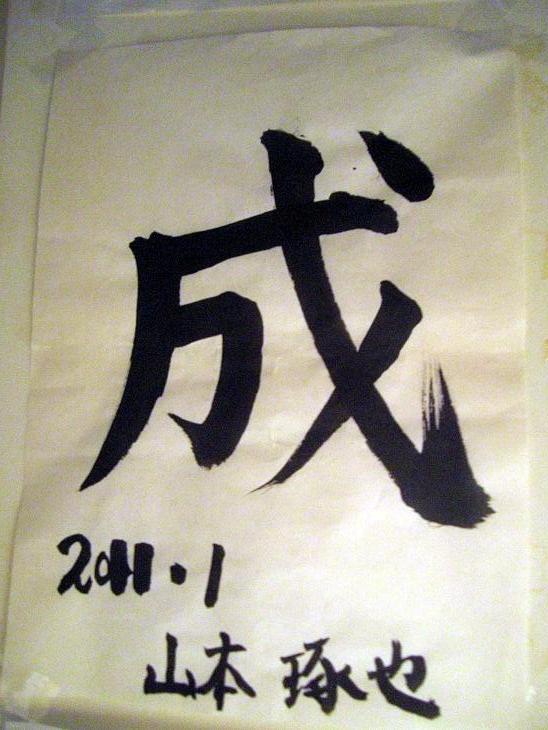 成
2011.1
山本 琢也